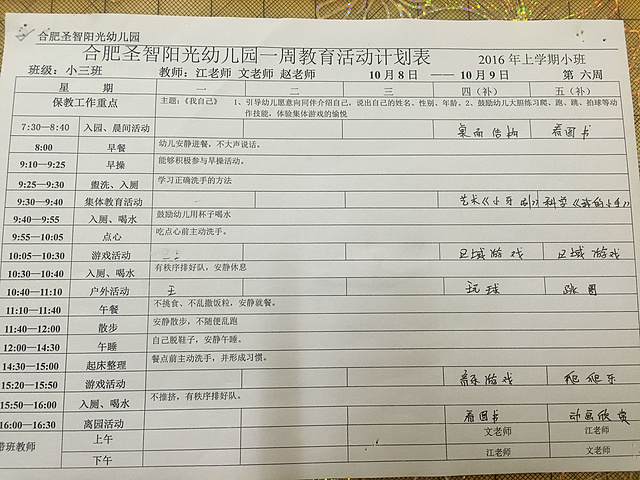 合肥圣智阳光幼儿园
合肥圣智阳光幼儿园一周教育活动计划表 2016年上学期小班
班级：小三班 教师：江老师 文老师 赵老师 10月8日 ——10月9日 第 六周
星 期 一 二 三 四（补） 五（补）
保教工作重点 主题：《我自己》 1、引导幼儿愿意向同伴介绍自己，说出自己的姓名、性别、年龄。2、鼓励幼儿大胆练习爬、跑、跳、拍球等动
作技能，体验集体游戏的愉悦
7:30—8:40 入园、晨间活动 桌面 看图书
8:00 早餐 幼儿安静进餐，不大声说话。
9:10—9:25 早操 能够积极参与早操活动。
9:25—9:30 盥洗、入厕 学习正确洗手的方法
9:30—9:40 集体教育活动 艺术《小牙刷》 科学《我的小手》
9:40—9:55 入厕、喝水 鼓励幼儿用杯子喝水
9:55—10:05 点心 吃点心前主动洗手。
10:05—10:30 游戏活动 区域游戏 区域游戏
10:30—10:40 入厕、喝水 有秩序排好队，安静休息
10:40—11:10 户外活动 玩球 跳圈
11:10—11:40 午餐 不挑食、不乱撒饭粒，安静就餐。
11:40—12:00 散步 安静散步，不随便乱跑
12:00—14:30 午睡 自己脱鞋子，安静午睡。
14:30—15:00 起床整理 餐点前主动洗手，并形成习惯。
15:20—15:50 游戏活动 游戏 爬爬乐
15:50—16:00 入厕、喝水 不推挤，有秩序排好队。
16:00—16:30 离园活动 看图书 动画欣赏
带班教师 上午 文老师 江老师
下午 江老师 文老师